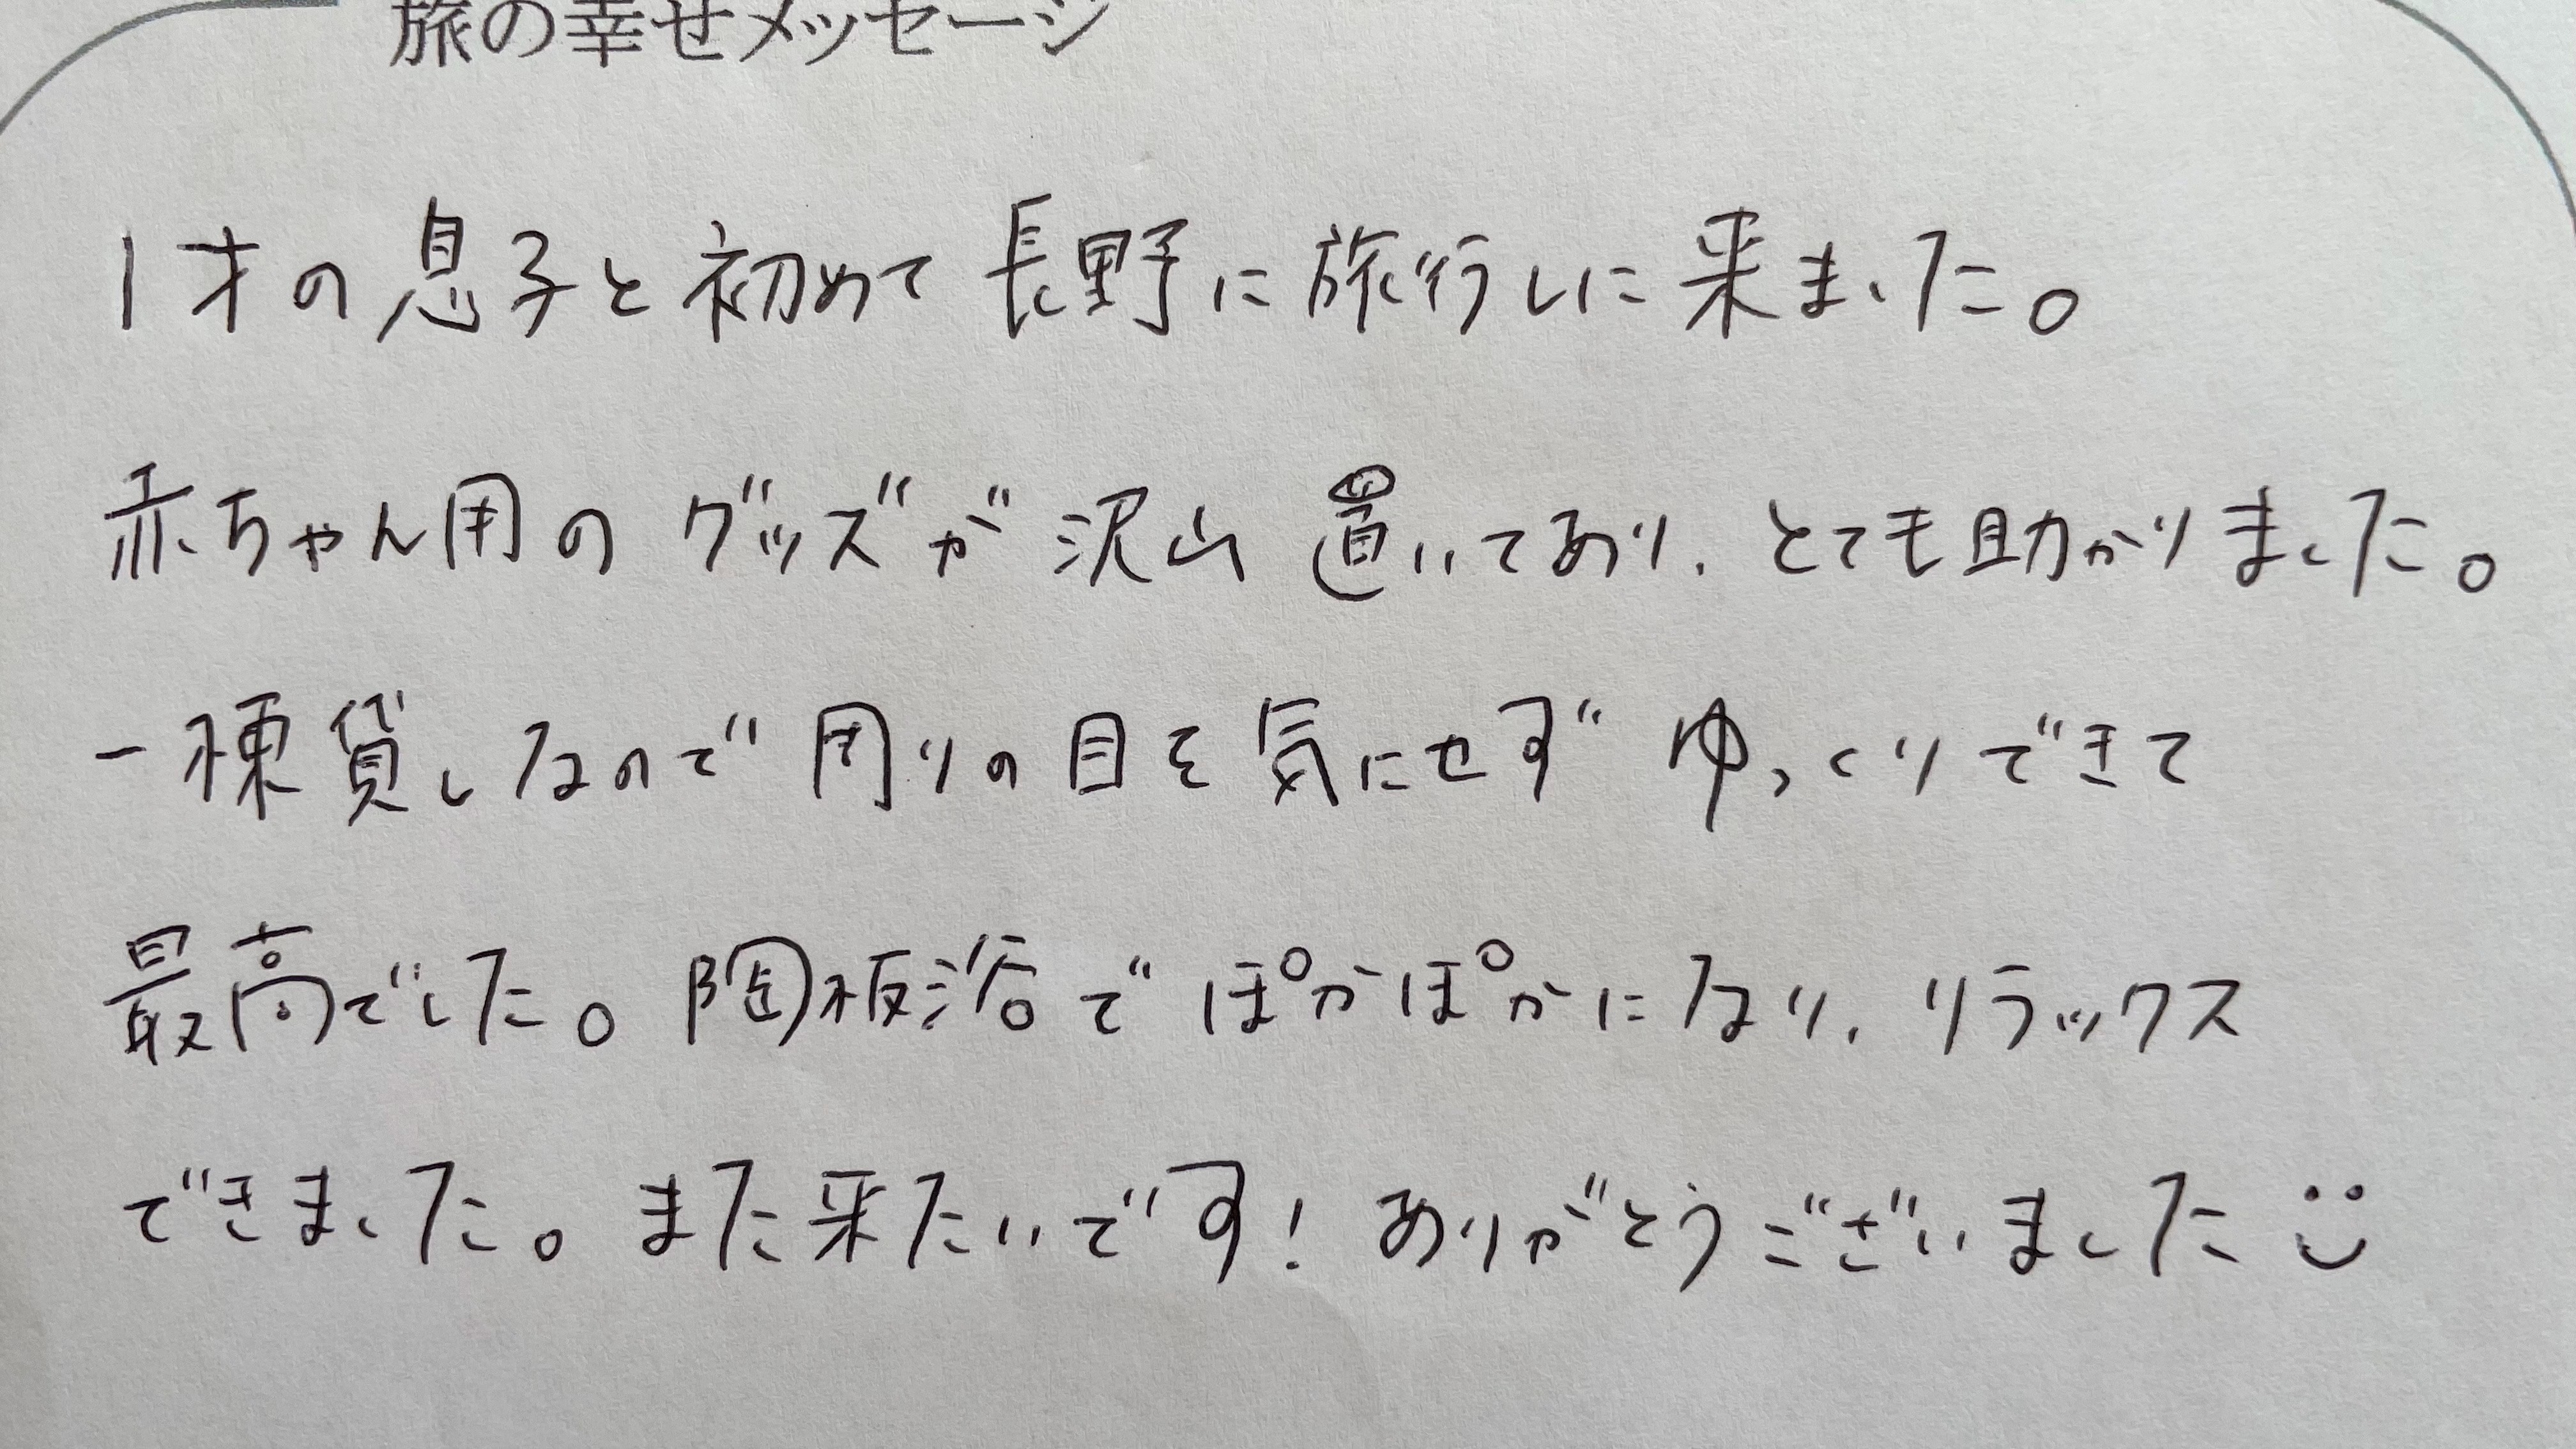 旅の幸せメッセージ
1才の息子と初めて長野に旅行しに来ました。
赤ちゃん用のグッズが沢山置いてあり、とても助かりました。
一棟貸しなので周りの目を気にせずゆっくりできて
最高でした。陶板浴でぽかぽかになり、リラックス
できました。また来たいです!ありがとうございました